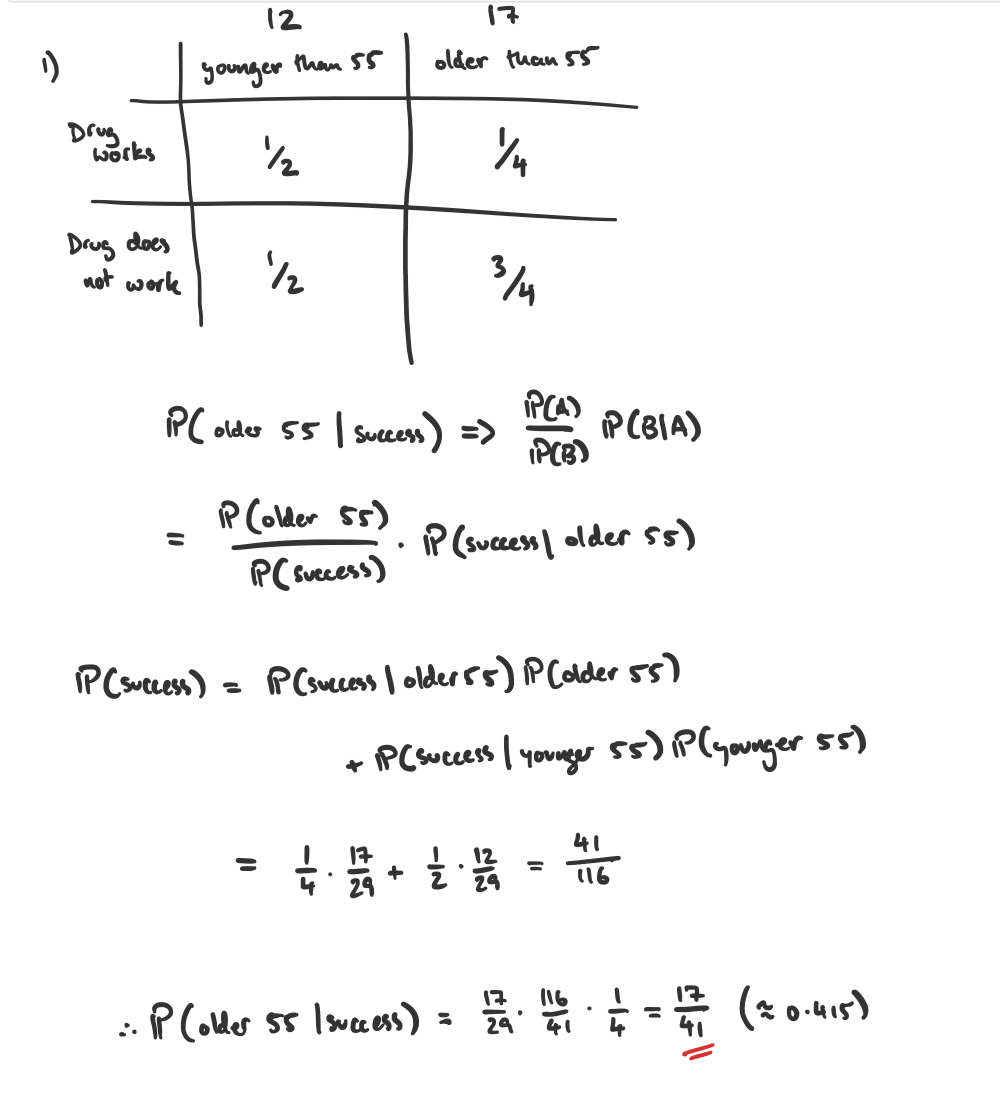 12 17
1) younger than 55 older than 55
Drug works 1/2 1/4
Drug does not work 1/2 3/4
ℙ(older 55 | success) => ℙ(A)/ℙ(B) ℙ(B|A)
= ℙ(older 55)/ℙ(success) · ℙ(success | older 55)
ℙ(success) = ℙ(success | older 55) ℙ(older 55)
+ ℙ(success | younger 55) ℙ(younger 55)
= 1/4 · 17/29 + 1/2 · 12/29 = 41/116
∴ ℙ(older 55 | success) = 17/29 · 116/41 · 1/4 = 17/41 (≈ 0.415)